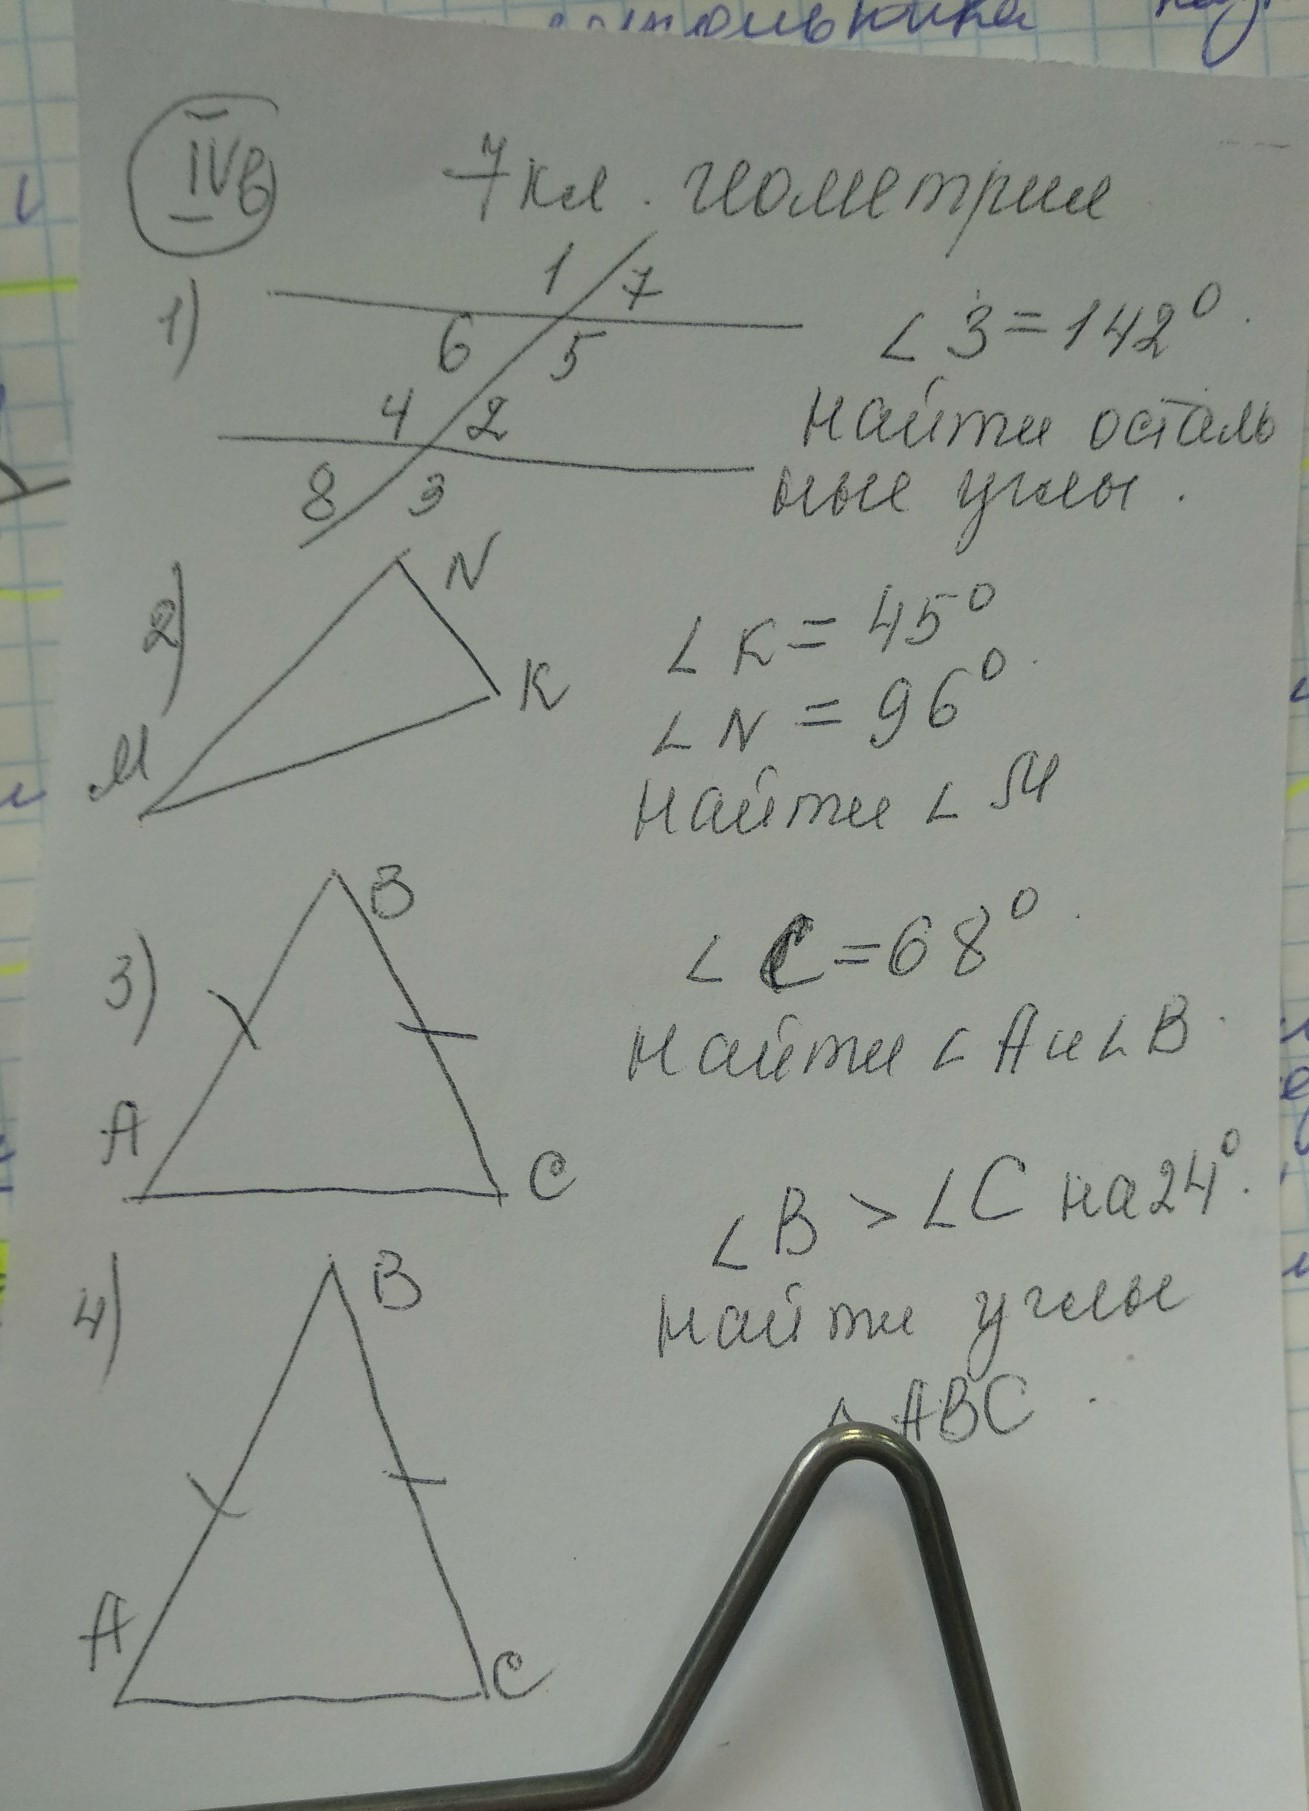 IVв
7 кл. геометрия
1)
1 7
6 5
4 2
8 3
∠3 = 142°.
Найти осталь
ные углы.
2)
N
K
M
∠K = 45°
∠N = 96°.
Найти ∠M
3)
B
A
C
∠C = 68°.
Найти ∠A и ∠B.
4)
B
A
C
∠B > ∠C на 24°.
Найти углы
△ ABC.